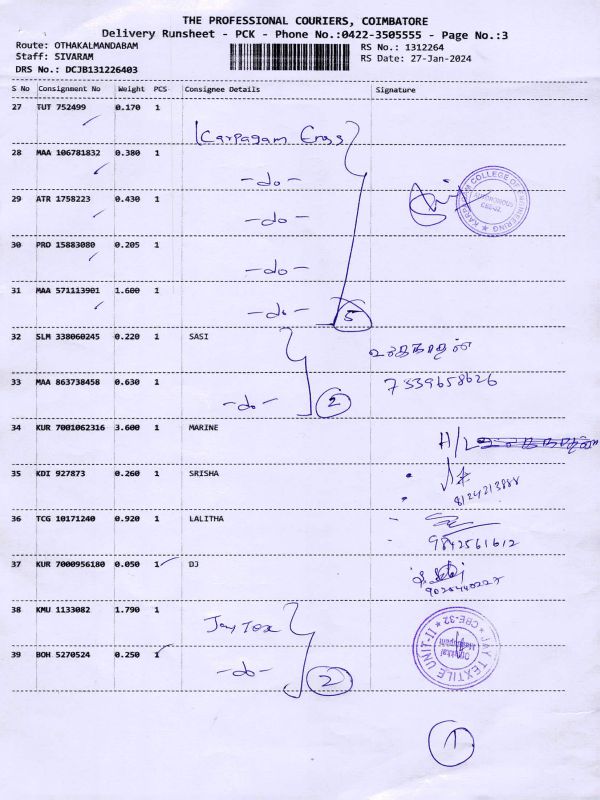 THE PROFESSIONAL COURIERS, COIMBATORE
Delivery Runsheet - PCK - Phone No.:0422-3505555 - Page No.:3
Route: OTHAKALMANDABAM RS No.: 1312264
Staff: SIVARAM RS Date: 27-Jan-2024
DRS No.: DCJB131226403
S No Consignment No Weight PCS Consignee Details Signature
27 TUT 752499 0.170 1
Carpagam
28 MAA 106781832 0.380 1
-do-
29 ATR 1758223 0.430 1
-do-
KARPAGAM COLLEGE OF ENGINEERING
AUTONOMOUS
30 PRO 15883080 0.205 1
-do-
31 MAA 571113901 1.600 1
-do- 5
32 SLM 338060245 0.220 1 SASI
33 MAA 863738458 0.630 1 7339658626
-do- 2
34 KUR 7001062316 3.600 1 MARINE
H/L
35 KDI 927873 0.260 1 SRISHA
8124213888
36 TCG 10171240 0.920 1 LALITHA
9842561612
37 KUR 7000956180 0.050 1 DJ
38 KMU 1133082 1.790 1
Jay Tex
39 BOH 5270524 0.250 1
-do- 2
JAY TEXTILE UNIT-II
CBE-32
1